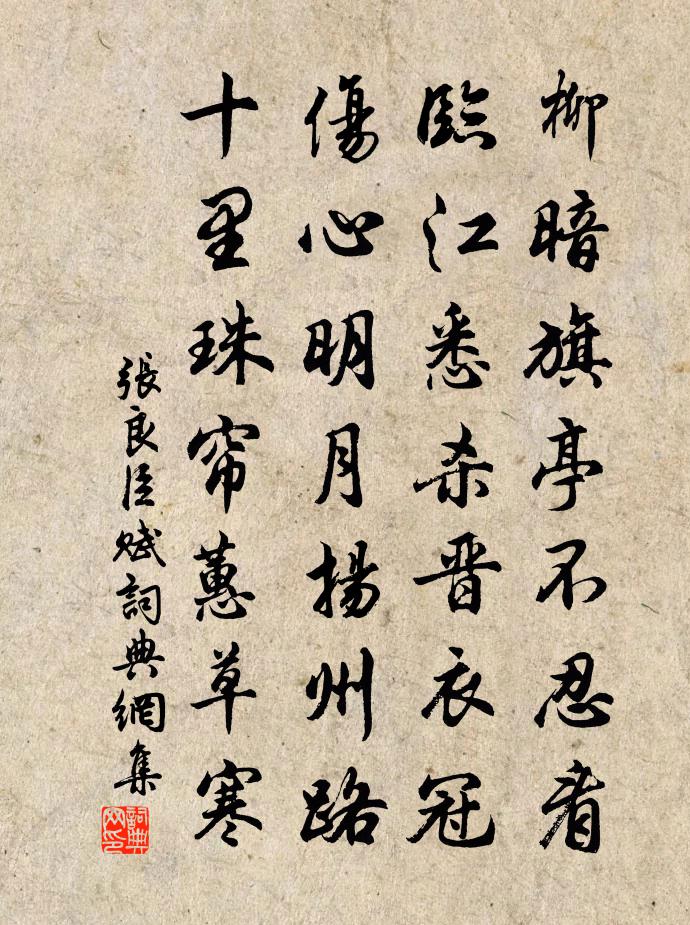 柳暗旗亭不忍看
臨江悉杀晋衣冠
傷心明月揚州路
十里珠帘蕙草寒
張良臣賦詞典網集
詞典网印